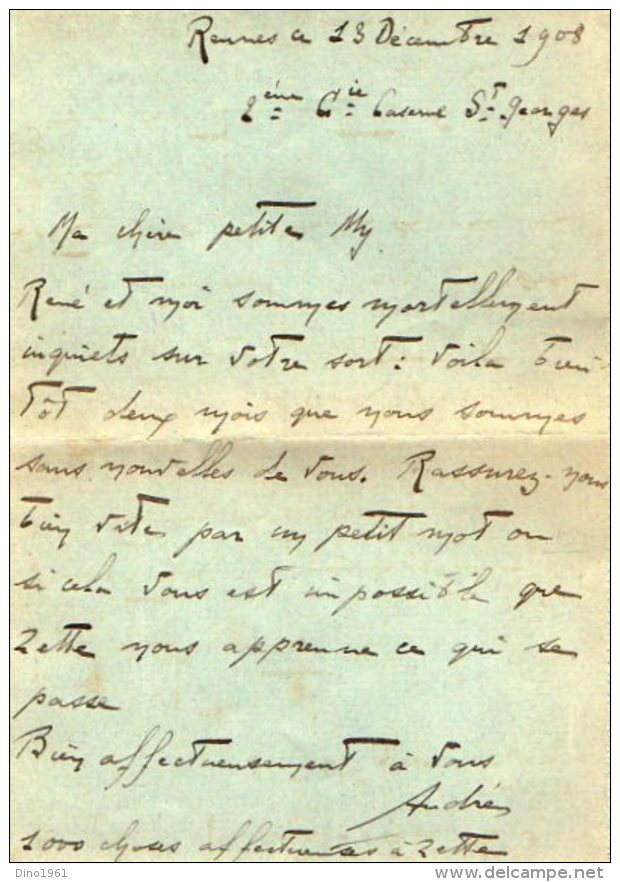 Rennes ce 13 Décembre 1908
2ème Cie Caserne St. Georges
Ma chère petite My
René et moi sommes mortellement
inquiets sur votre sort : voila bien
tôt deux mois que nous sommes
sans nouvelles de vous. Rassurez-nous
bien vite par un petit mot ou
si cela vous est impossible que
Zette nous apprenne ce qui se
passe
Bien affectueusement à vous
André
1000 choses affectueuses à Zette
Dino1961
delcampe.net